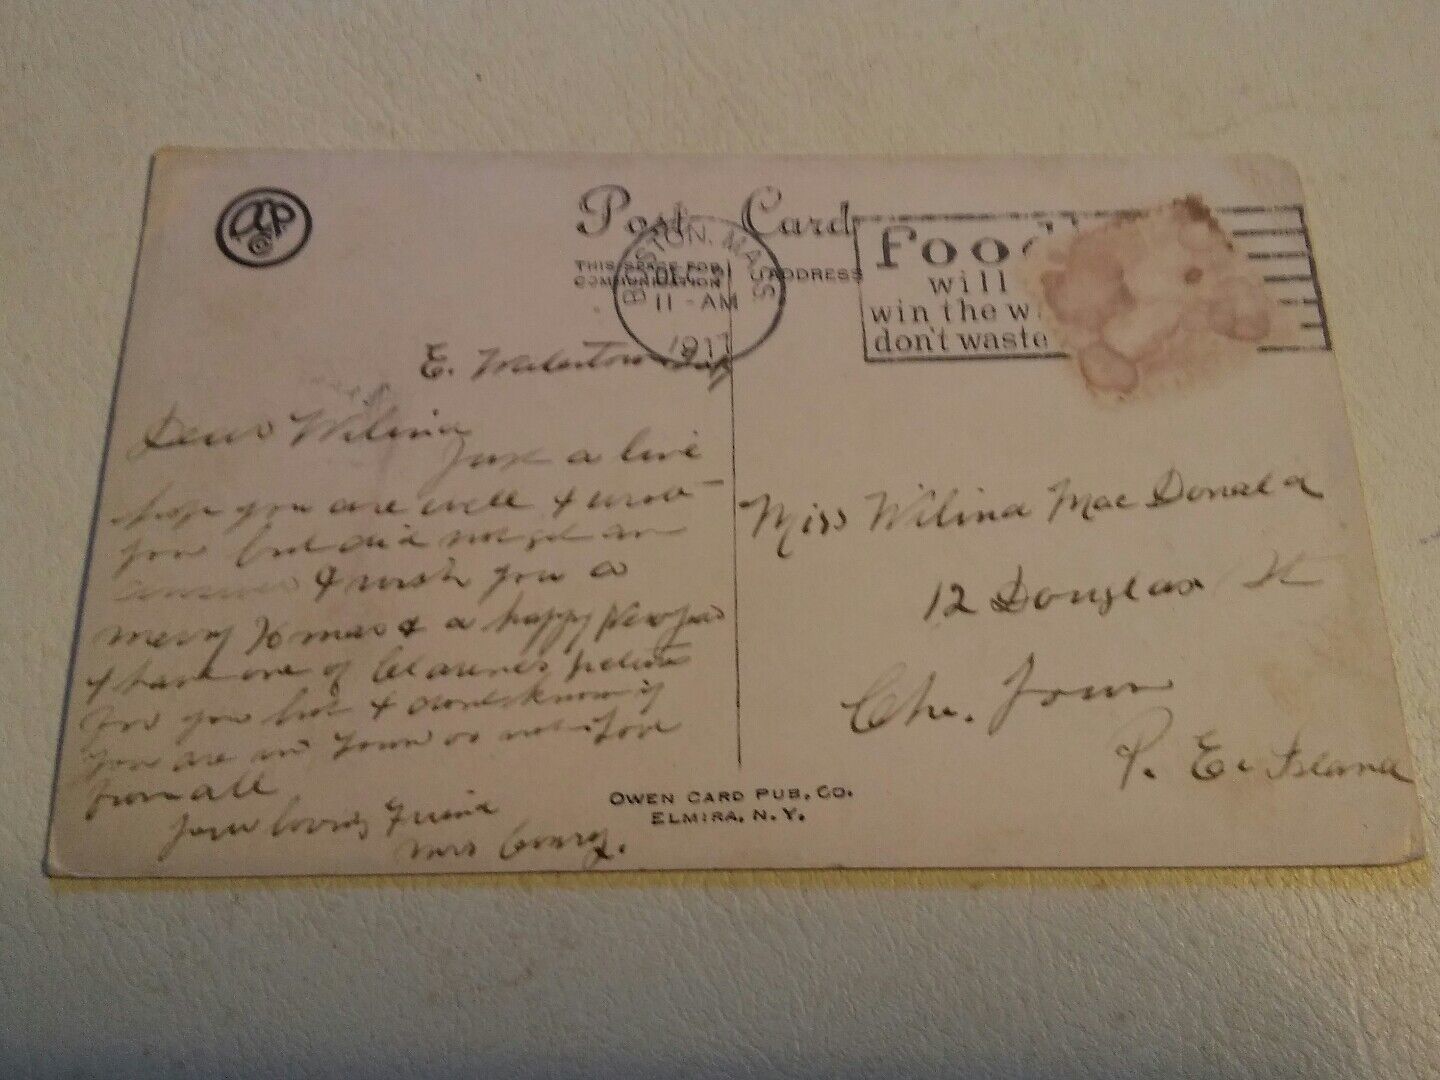 Post Card
THIS SPACE FOR
COMMUNICATION
ADDRESS
BOSTON, MASS
DEC
11-AM
1917
Food
will
win the w
don't waste
E. Watertown
Dear Wilina
Just a line
hope you are well & wrote
you but did not get an
answer & wish you a
merry Xmas & a happy New Year
I have one of Clarence's
for you but I don't know if
you are in Town or not Love
from all
your loving Friend
Mrs
Miss Wilina MacDonald
12 Douglas St
Ch. Town
P. E. Island
OWEN CARD PUB. CO.
ELMIRA, N.Y.